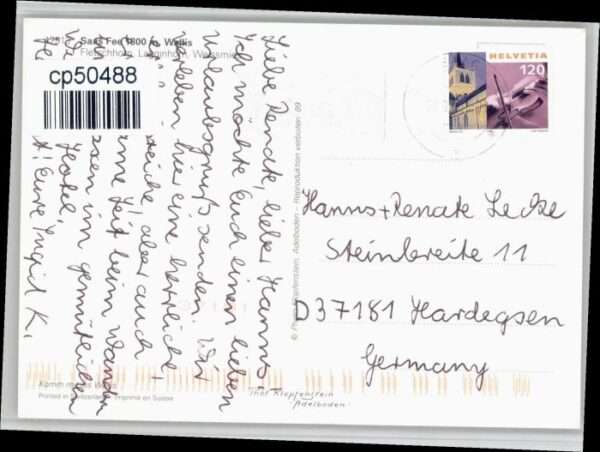 Saas Fee 1800 m, Wallis
Fletschhorn, Lagginhorn, Weissmies
cp50488
Liebe Renate, lieber Hanns,
Ich möchte Euch einen lieben
Urlaubsgruß senden. Wir
erleben hier eine herrliche
aber auch
Zeit beim Wandern
im gemütlichen
Hotel.
Eure Ingrid K.
HELVETIA
120
Hanns+Renate Lecke
Steinbreite 11
D37181 Hardegsen
Germany
Reproduktion verboten 89
Printed in Switzerland Imprimé en Suisse
Thor Klopfenstein
Adelboden